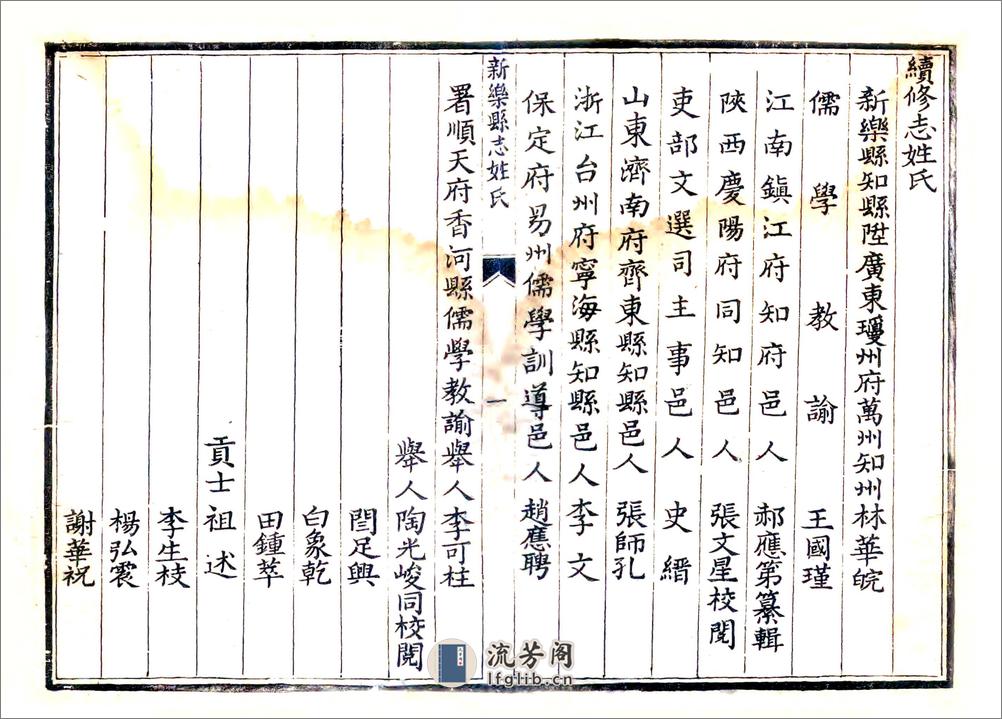 續修志姓氏
新樂縣知縣陞廣東瓊州府萬州知州林華皖
儒學教諭王國瑾
江南鎮江府知府邑人郝應第纂輯
陝西慶陽府同知邑人張文星校閱
吏部文選司主事邑人史縉
山東濟南府齊東縣知縣邑人張師孔
浙江台州府寧海縣知縣邑人李文
保定府易州儒學訓導邑人趙應聘
新樂縣志姓氏
一
署順天府香河縣儒學教諭舉人李可柱
舉人陶光峻同校閱
閆足興
白象乾
田鍾萃
貢士祖述
李生枝
楊弘震
謝華祝
流芳阁
lfglib.cn